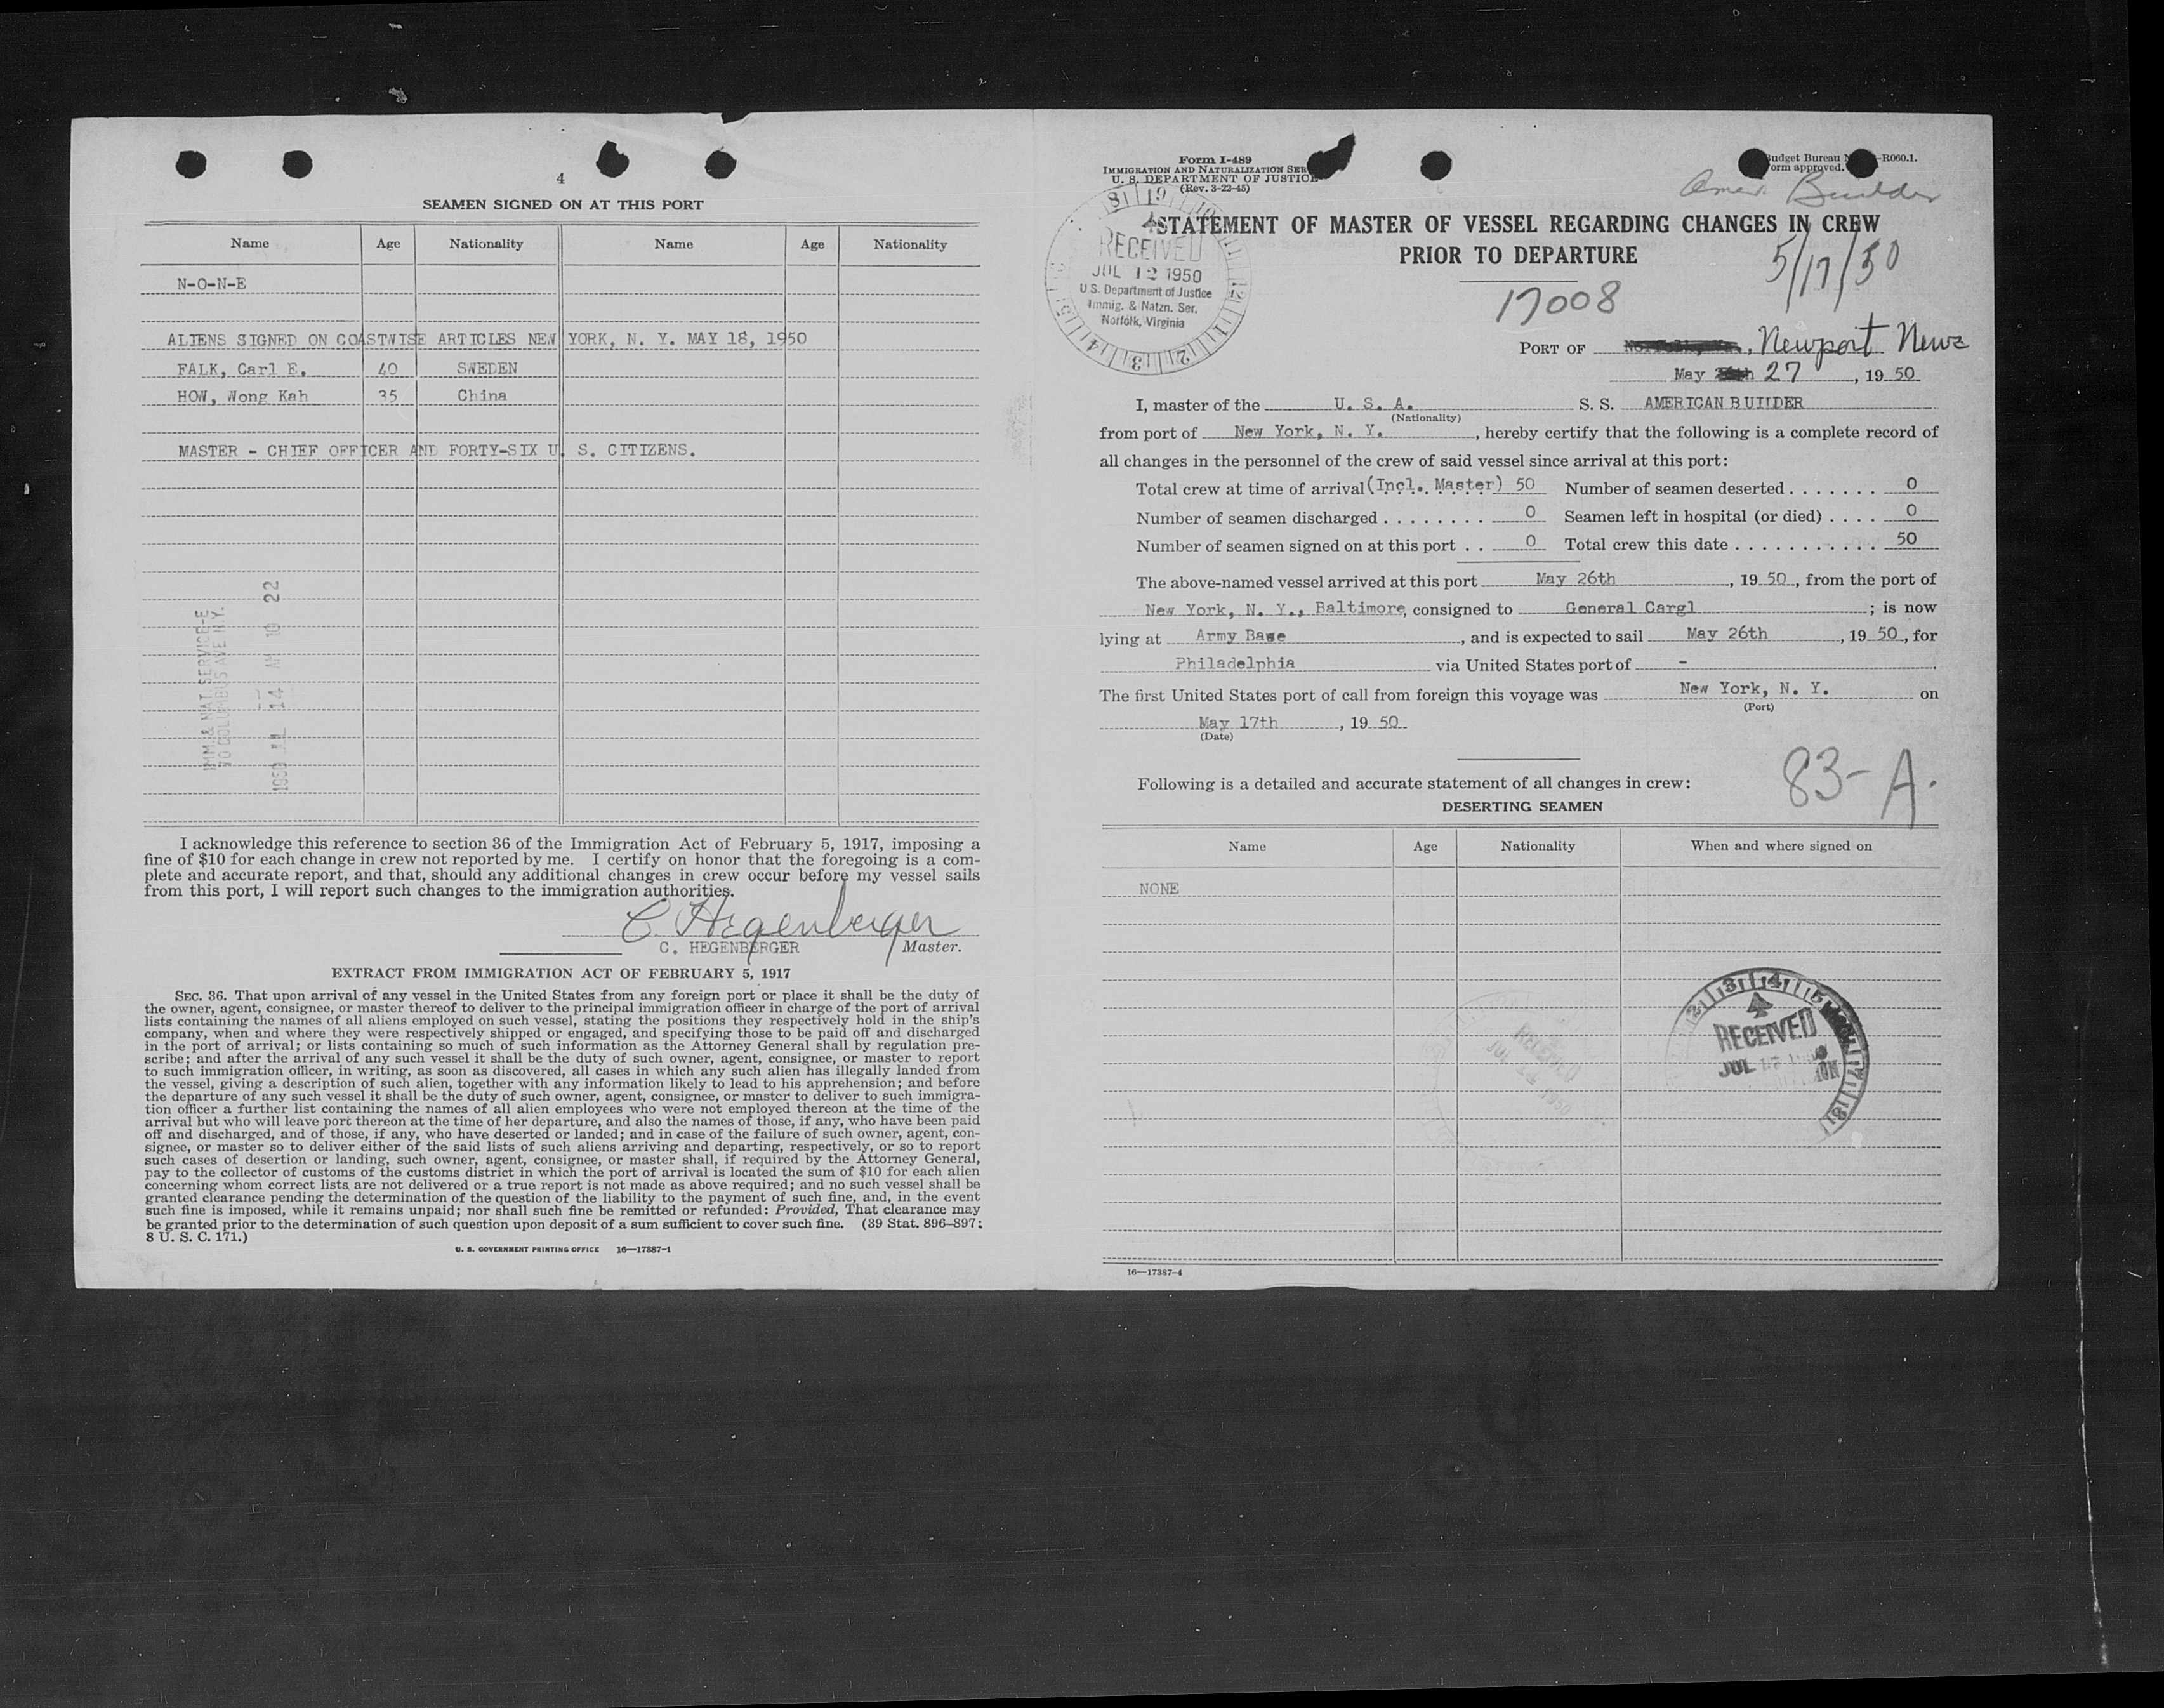 4
SEAMEN SIGNED ON AT THIS PORT
Name Age Nationality Name Age Nationality
N-O-N-E
ALIENS SIGNED ON COASTWISE ARTICLES NEW YORK, N. Y. MAY 18, 1950
FALK, Carl E. 40 SWEDEN
HOW, Wong Kah 35 China
MASTER - CHIEF OFFICER AND FORTY-SIX U. S. CITIZENS.
IMM. & NAT. SERVICE-E
70 COLUMBUS AVE N.Y.
1950 JUL 14 AM 10 22
I acknowledge this reference to section 36 of the Immigration Act of February 5, 1917, imposing a
fine of $10 for each change in crew not reported by me. I certify on honor that the foregoing is a com-
plete and accurate report, and that, should any additional changes in crew occur before my vessel sails
from this port, I will report such changes to the immigration authorities.
C. Hegenberger
C. HEGENBERGER Master.
EXTRACT FROM IMMIGRATION ACT OF FEBRUARY 5, 1917
SEC. 36. That upon arrival of any vessel in the United States from any foreign port or place it shall be the duty of
the owner, agent, consignee, or master thereof to deliver to the principal immigration officer in charge of the port of arrival
lists containing the names of all aliens employed on such vessel, stating the positions they respectively hold in the ship's
company, when and where they were respectively shipped or engaged, and specifying those to be paid off and discharged
in the port of arrival; or lists containing so much of such information as the Attorney General shall by regulation pre-
scribe; and after the arrival of any such vessel it shall be the duty of such owner, agent, consignee, or master to report
to such immigration officer, in writing, as soon as discovered, all cases in which any such alien has illegally landed from
the vessel, giving a description of such alien, together with any information likely to lead to his apprehension; and before
the departure of any such vessel it shall be the duty of such owner, agent, consignee, or master to deliver to such immigra-
tion officer a further list containing the names of all alien employees who were not employed thereon at the time of the
arrival but who will leave port thereon at the time of her departure, and also the names of those, if any, who have been paid
off and discharged, and of those, if any, who have deserted or landed; and in case of the failure of such owner, agent, con-
signee, or master so to deliver either of the said lists of such aliens arriving and departing, respectively, or so to report
such cases of desertion or landing, such owner, agent, consignee, or master shall, if required by the Attorney General,
pay to the collector of customs of the customs district in which the port of arrival is located the sum of $10 for each alien
concerning whom correct lists are not delivered or a true report is not made as above required; and no such vessel shall be
granted clearance pending the determination of the question of the liability to the payment of such fine, and, in the event
such fine is imposed, while it remains unpaid; nor shall such fine be remitted or refunded: Provided, That clearance may
be granted prior to the determination of such question upon deposit of a sum sufficient to cover such fine. (39 Stat. 896–897;
8 U. S. C. 171.)
U. S. GOVERNMENT PRINTING OFFICE 16—17387-1
Form I-489
IMMIGRATION AND NATURALIZATION SER
U. S. DEPARTMENT OF JUSTICE
(Rev. 3-22-45)
udget Bureau -R060.1.
orm approved.
Amer. Builder
STATEMENT OF MASTER OF VESSEL REGARDING CHANGES IN CREW
PRIOR TO DEPARTURE
5/17/50
RECEIVED
JUL 12 1950
U.S. Department of Justice
Immig. & Natzn. Ser.
Norfolk, Virginia
17008
PORT OF Newport News
May 27, 1950
I, master of the U. S. A. S. S. AMERICAN BUILDER
(Nationality)
from port of New York, N. Y., hereby certify that the following is a complete record of
all changes in the personnel of the crew of said vessel since arrival at this port:
Total crew at time of arrival (Incl. Master) 50 Number of seamen deserted . . . . . . . 0
Number of seamen discharged . . . . . . . . 0 Seamen left in hospital (or died) . . . . 0
Number of seamen signed on at this port . . 0 Total crew this date . . . . . . . . . . . . 50
The above-named vessel arrived at this port May 26th, 1950, from the port of
New York, N. Y., Baltimore, consigned to General Cargl; is now
lying at Army Base, and is expected to sail May 26th, 1950, for
Philadelphia via United States port of -
The first United States port of call from foreign this voyage was New York, N. Y. on
(Port)
May 17th, 1950.
(Date)
Following is a detailed and accurate statement of all changes in crew:
83-A.
DESERTING SEAMEN
Name Age Nationality When and where signed on
NONE
RECEIVED
JUL 14 1950
RECEIVED
JUL
16—17387-4